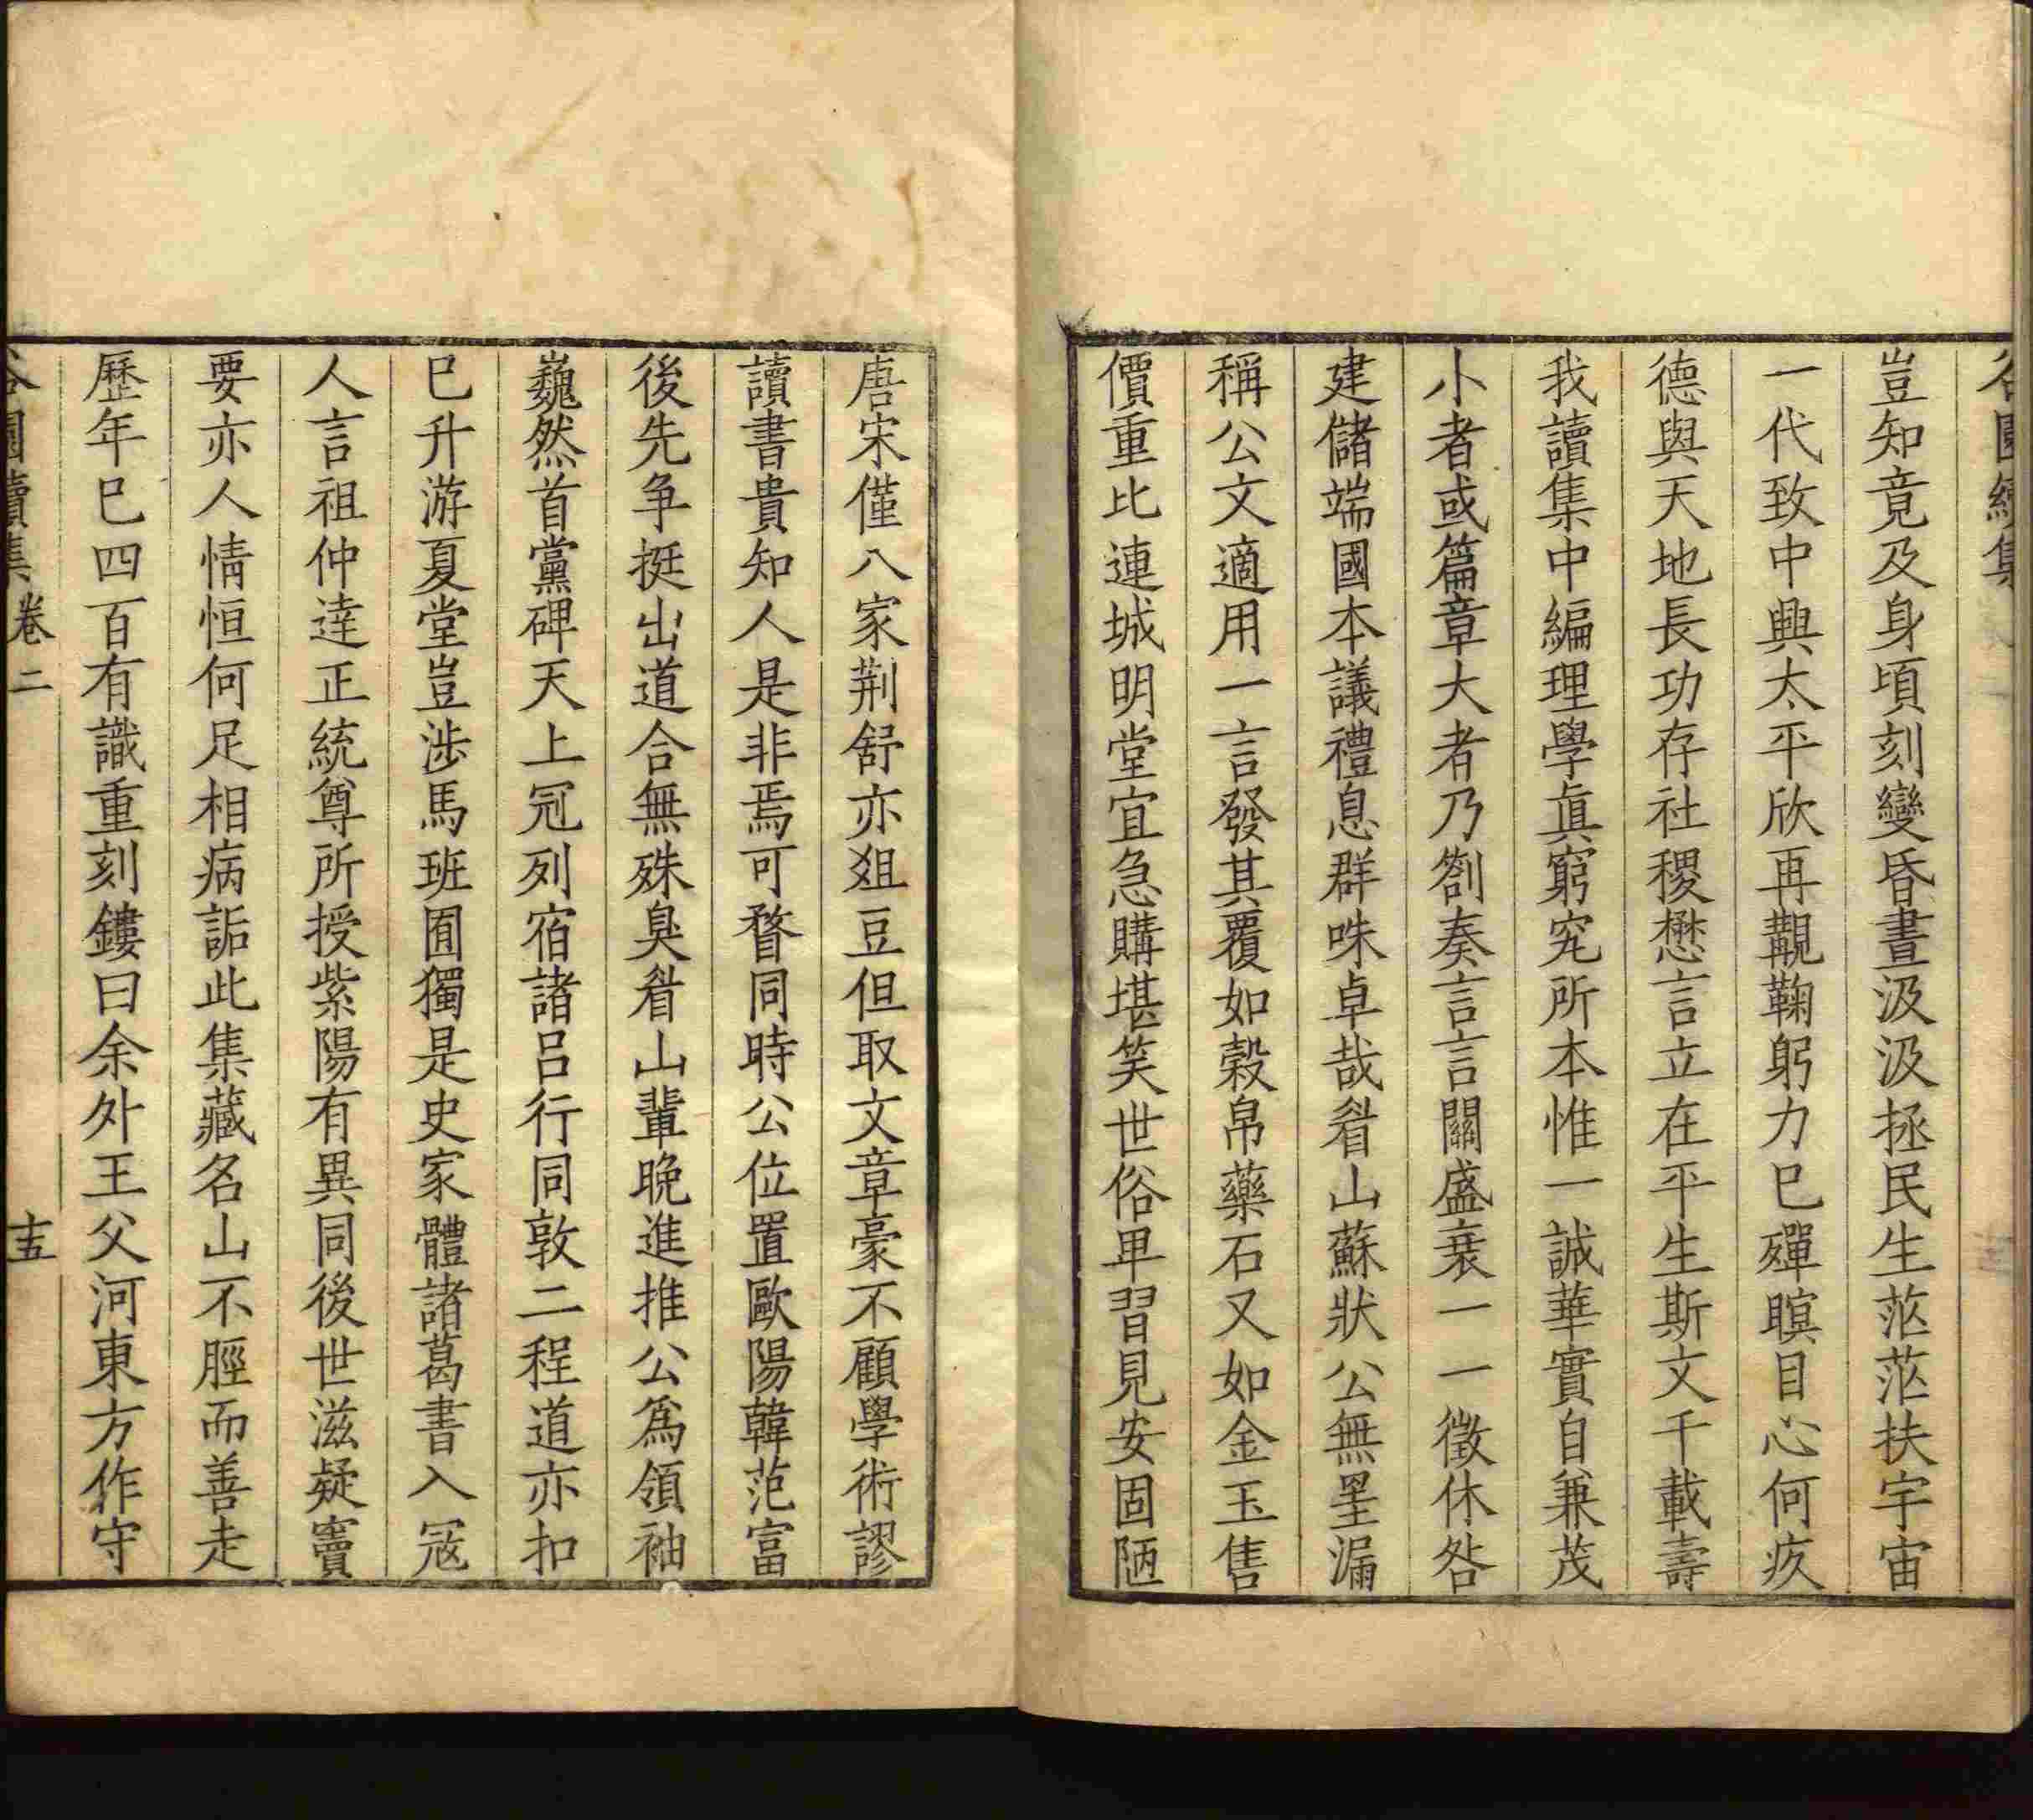 豈知竟及身頃刻變昏晝汲汲拯民生茫茫扶宇宙
一代致中興太平欣再覯鞠躬力已殫瞑目心何疚
德與天地長功存社稷懋言立在平生斯文千載壽
我讀集中編理學眞窮究所本惟一誠華實自兼茂
小者或篇章大者乃劄奏言言關盛衰一一徵休咎
建儲端國本議禮息群咮卓哉眉山蘇狀公無罣漏
稱公文適用一言發其覆如榖帛藥石又如金玉售
價重比連城明堂宜急購堪笑世俗卑習見安固陋
唐宋僅八家荆舒亦爼豆但取文章豪不顧學術謬
讀書貴知人是非焉可瞀同時公位置歐陽韓范富
後先争挺出道合無殊臭眉山輩晚進推公爲領袖
巍然首黨碑天上冠列宿諸呂行同敦二程道亦扣
巳升游夏堂豈涉馬班囿獨是史家體諸葛書入冦
人言祖仲達正統尊所授紫陽有異同後世滋疑竇
要亦人情恒何足相病詬此集藏名山不脛而善走
歷年巳四百有識重刻鏤曰余外王父河東方作守
谷園續集 卷二 十五